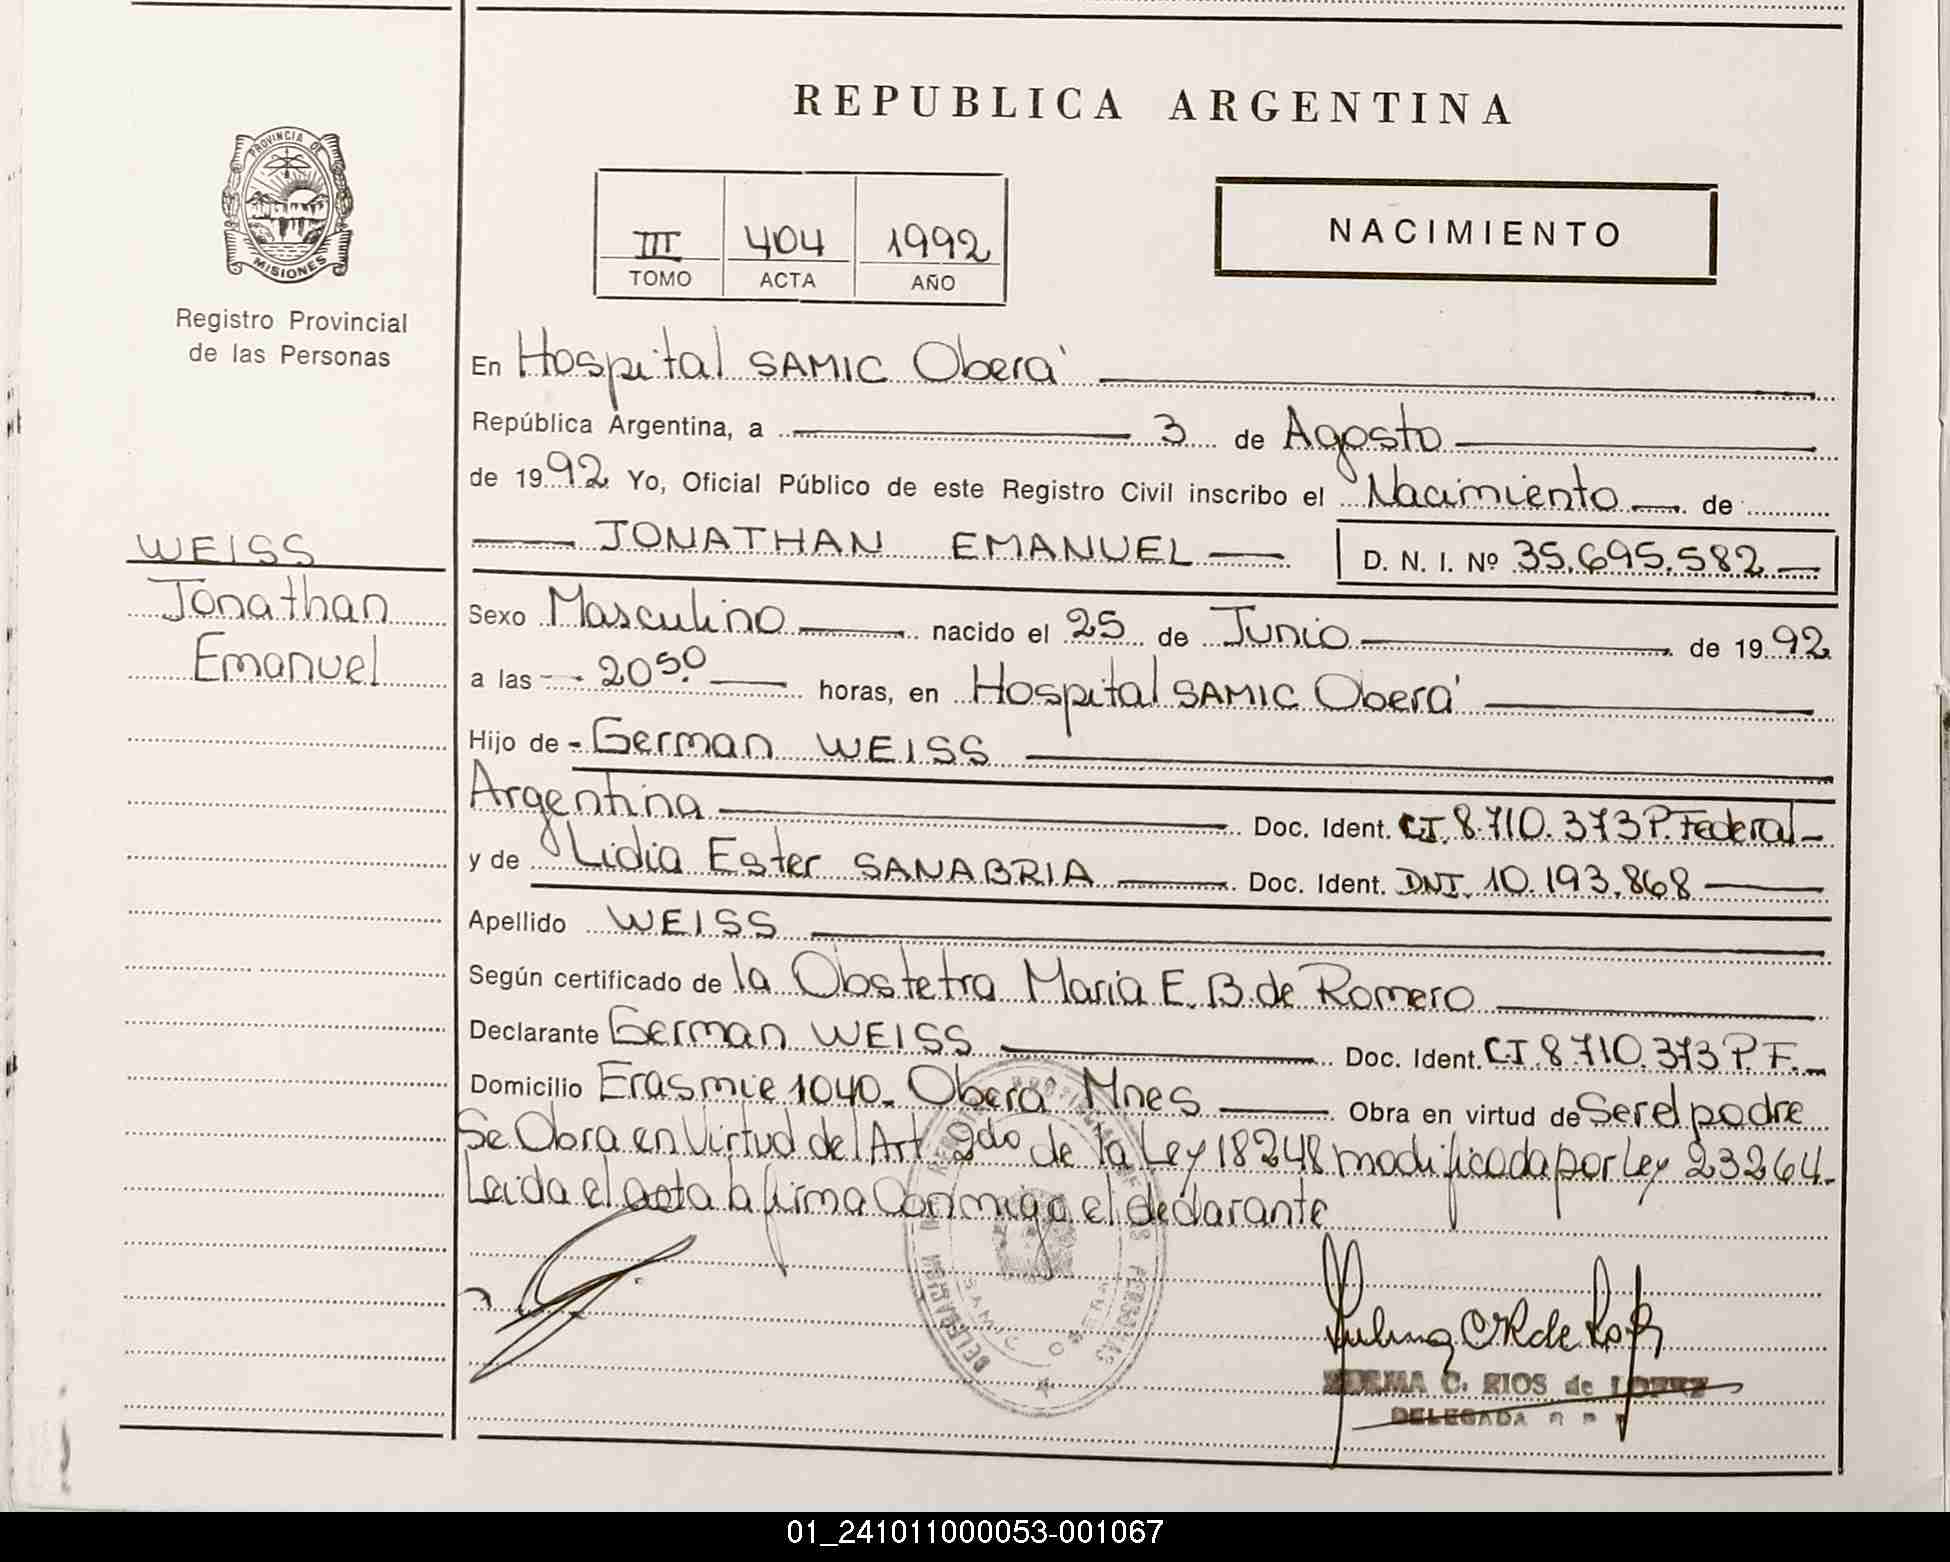 REPUBLICA ARGENTINA
PROVINCIA DE
MISIONES
Registro Provincial
de las Personas
III 404 1992
TOMO ACTA AÑO
NACIMIENTO
En Hospital SAMIC Oberá
República Argentina, a 3 de Agosto
de 1992 Yo, Oficial Público de este Registro Civil inscribo el Nacimiento de
JONATHAN EMANUEL D. N. I. Nº 35.695.582
WEISS
Jonathan
Emanuel
Sexo Masculino nacido el 25 de Junio de 1992
a las 20⁵⁰ horas, en Hospital SAMIC Oberá
Hijo de German WEISS
Argentina Doc. Ident. C.I. 8.710.373 P. Federal
y de Lidia Ester SANABRIA Doc. Ident. DNI. 10.193.868
Apellido WEISS
Según certificado de la Obstetra Maria E. B. de Romero
Declarante German WEISS Doc. Ident. C.I. 8.710.373 P. F.
Domicilio Erasmie 1040. Oberá Mnes Obra en virtud de Ser el padre
Se Obra en Virtud del Art. 2do de la Ley 18248 modificada por Ley 23264.
Leida el acta la firma Conmigo el declarante
SAMIC OBERA
NORMA C. RIOS de LOPEZ
DELEGADA
01_241011000053-001067